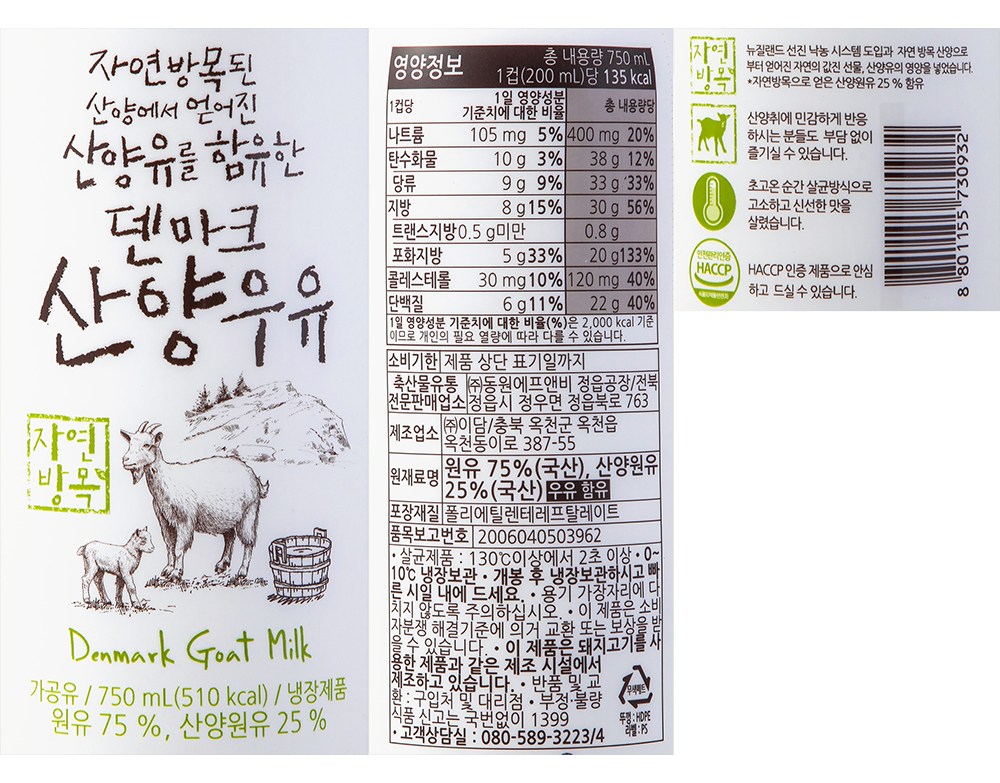 자연방목된
산양에서 얻어진
산양유를 함유한
덴마크
산양우유
자연
방목
Denmark Goat Milk
가공유 / 750 mL(510 kcal) / 냉장제품
원유 75 %, 산양원유 25 %
영양정보
총 내용량 750 mL
1컵(200 mL)당 135 kcal
1컵당 1일 영양성분 기준치에 대한 비율 총 내용량당
나트륨 105 mg 5% 400 mg 20%
탄수화물 10 g 3% 38 g 12%
당류 9 g 9% 33 g 33%
지방 8 g 15% 30 g 56%
트랜스지방 0.5 g미만 0.8 g
포화지방 5 g 33% 20 g 133%
콜레스테롤 30 mg 10% 120 mg 40%
단백질 6 g 11% 22 g 40%
1일 영양성분 기준치에 대한 비율(%)은 2,000 kcal 기준
이므로 개인의 필요 열량에 따라 다를 수 있습니다.
소비기한 제품 상단 표기일까지
축산물유통 ㈜동원에프앤비 정읍공장/전북
전문판매업소 정읍시 정우면 정읍북로 763
제조업소 ㈜이담/충북 옥천군 옥천읍
옥천동이로 387-55
원재료명 원유 75%(국산), 산양원유
25%(국산) 우유 함유
포장재질 폴리에틸렌테레프탈레이트
품목보고번호 2006040503962
• 살균제품 : 130℃이상에서 2초 이상 • 0~
10℃ 냉장보관 • 개봉 후 냉장보관하시고 빠
른 시일 내에 드세요. • 용기 가장자리에 다
치지 않도록 주의하십시오. • 이 제품은 소비
자분쟁 해결기준에 의거 교환 또는 보상을 받
을 수 있습니다. • 이 제품은 돼지고기를 사
용한 제품과 같은 제조 시설에서
제조하고 있습니다. • 반품 및 교
환 : 구입처 및 대리점 • 부정·불량
식품 신고는 국번없이 1399
• 고객상담실 : 080-589-3223/4
무색페트
뚜껑 : HDPE
라벨 : PS
자연
방목
뉴질랜드 선진 낙농 시스템 도입과 자연 방목 산양으로
부터 얻어진 자연의 값진 선물, 산양유의 영양을 넣었습니다.
*자연방목으로 얻은 산양원유 25 % 함유
산양취에 민감하게 반응
하시는 분들도 부담 없이
즐기실 수 있습니다.
초고온 순간 살균방식으로
고소하고 신선한 맛을
살렸습니다.
안전관리인증
HACCP
식품의약품안전처
HACCP 인증 제품으로 안심
하고 드실 수 있습니다.
8 801155 730932